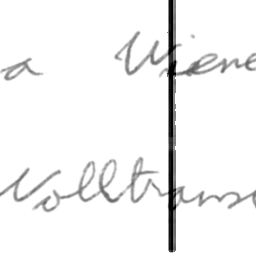 a Wiene
Volltrans